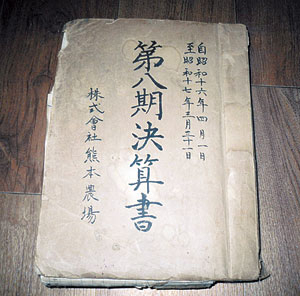 自昭和十六年四月一日
至昭和十七年三月三十一日
第八期決算書
株式會社熊本農場